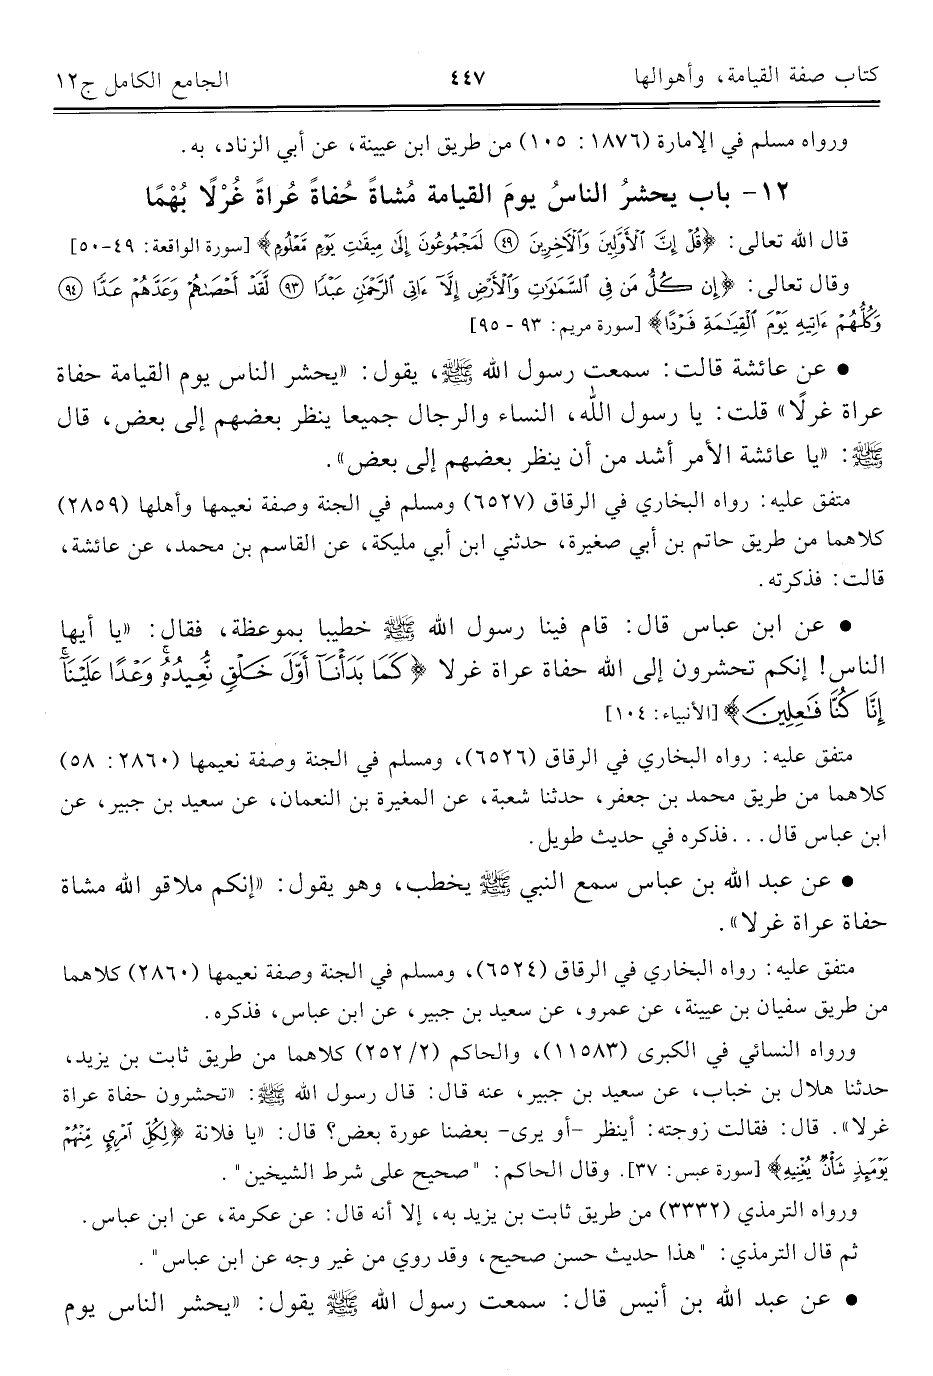 كتاب صفة القيامة، وأهوالها ٤٤٧ الجامع الكامل ج١٢
ورواه مسلم في الإمارة (١٨٧٦: ١٠٥) من طريق ابن عيينة، عن أبي الزناد، به.
١٢- باب يحشرُ الناسُ يومَ القيامة مُشاةً حُفاةً عُراةً غُرْلًا بُهْمًا
قال الله تعالى: ﴿قُلْ إِنَّ ٱلْأَوَّلِينَ وَٱلْآخِرِينَ ٤٩ لَمَجْمُوعُونَ إِلَىٰ مِيقَٰتِ يَوْمٍ مَّعْلُومٍ﴾ [سورة الواقعة: ٤٩-٥٠]
وقال تعالى: ﴿إِن كُلُّ مَن فِى ٱلسَّمَٰوَٰتِ وَٱلْأَرْضِ إِلَّآ ءَاتِى ٱلرَّحْمَٰنِ عَبْدًا ٩٣ لَّقَدْ أَحْصَىٰهُمْ وَعَدَّهُمْ عَدًّا ٩٤
وَكُلُّهُمْ ءَاتِيهِ يَوْمَ ٱلْقِيَٰمَةِ فَرْدًا﴾ [سورة مريم: ٩٣ - ٩٥]
• عن عائشة قالت: سمعت رسول الله ﷺ، يقول: «يحشر الناس يوم القيامة حفاة
عراة غرلًا» قلت: يا رسول الله، النساء والرجال جميعا ينظر بعضهم إلى بعض، قال
ﷺ: «يا عائشة الأمر أشد من أن ينظر بعضهم إلى بعض».
متفق عليه: رواه البخاري في الرقاق (٦٥٢٧) ومسلم في الجنة وصفة نعيمها وأهلها (٢٨٥٩)
كلاهما من طريق حاتم بن أبي صغيرة، حدثني ابن أبي مليكة، عن القاسم بن محمد، عن عائشة،
قالت: فذكرته.
• عن ابن عباس قال: قام فينا رسول الله ﷺ خطيبا بموعظة، فقال: «يا أيها
الناس! إنكم تحشرون إلى الله حفاة عراة غرلا ﴿كَمَا بَدَأْنَآ أَوَّلَ خَلْقٍ نُّعِيدُهُۥ وَعْدًا عَلَيْنَآ
إِنَّا كُنَّا فَٰعِلِينَ﴾ [الأنبياء: ١٠٤]
متفق عليه: رواه البخاري في الرقاق (٦٥٢٦)، ومسلم في الجنة وصفة نعيمها (٢٨٦٠: ٥٨)
كلاهما من طريق محمد بن جعفر، حدثنا شعبة، عن المغيرة بن النعمان، عن سعيد بن جبير، عن
ابن عباس قال... فذكره في حديث طويل.
• عن عبد الله بن عباس سمع النبي ﷺ يخطب، وهو يقول: «إنكم ملاقو الله مشاة
حفاة عراة غرلا».
متفق عليه: رواه البخاري في الرقاق (٦٥٢٤)، ومسلم في الجنة وصفة نعيمها (٢٨٦٠) كلاهما
من طريق سفيان بن عيينة، عن عمرو، عن سعيد بن جبير، عن ابن عباس، فذكره.
ورواه النسائي في الكبرى (١١٥٨٣)، والحاكم (٢/ ٢٥٢) كلاهما من طريق ثابت بن يزيد،
حدثنا هلال بن خباب، عن سعيد بن جبير، عنه قال: قال رسول الله ﷺ: «تحشرون حفاة عراة
غرلا». قال: فقالت زوجته: أينظر -أو يرى- بعضنا عورة بعض؟ قال: «يا فلانة ﴿لِكُلِّ ٱمْرِئٍ مِّنْهُمْ
يَوْمَئِذٍ شَأْنٌ يُغْنِيهِ﴾ [سورة عبس: ٣٧]. وقال الحاكم: "صحيح على شرط الشيخين".
ورواه الترمذي (٣٣٣٢) من طريق ثابت بن يزيد به، إلا أنه قال: عن عكرمة، عن ابن عباس.
ثم قال الترمذي: "هذا حديث حسن صحيح، وقد روي من غير وجه عن ابن عباس".
• عن عبد الله بن أنيس قال: سمعت رسول الله ﷺ يقول: «يحشر الناس يوم